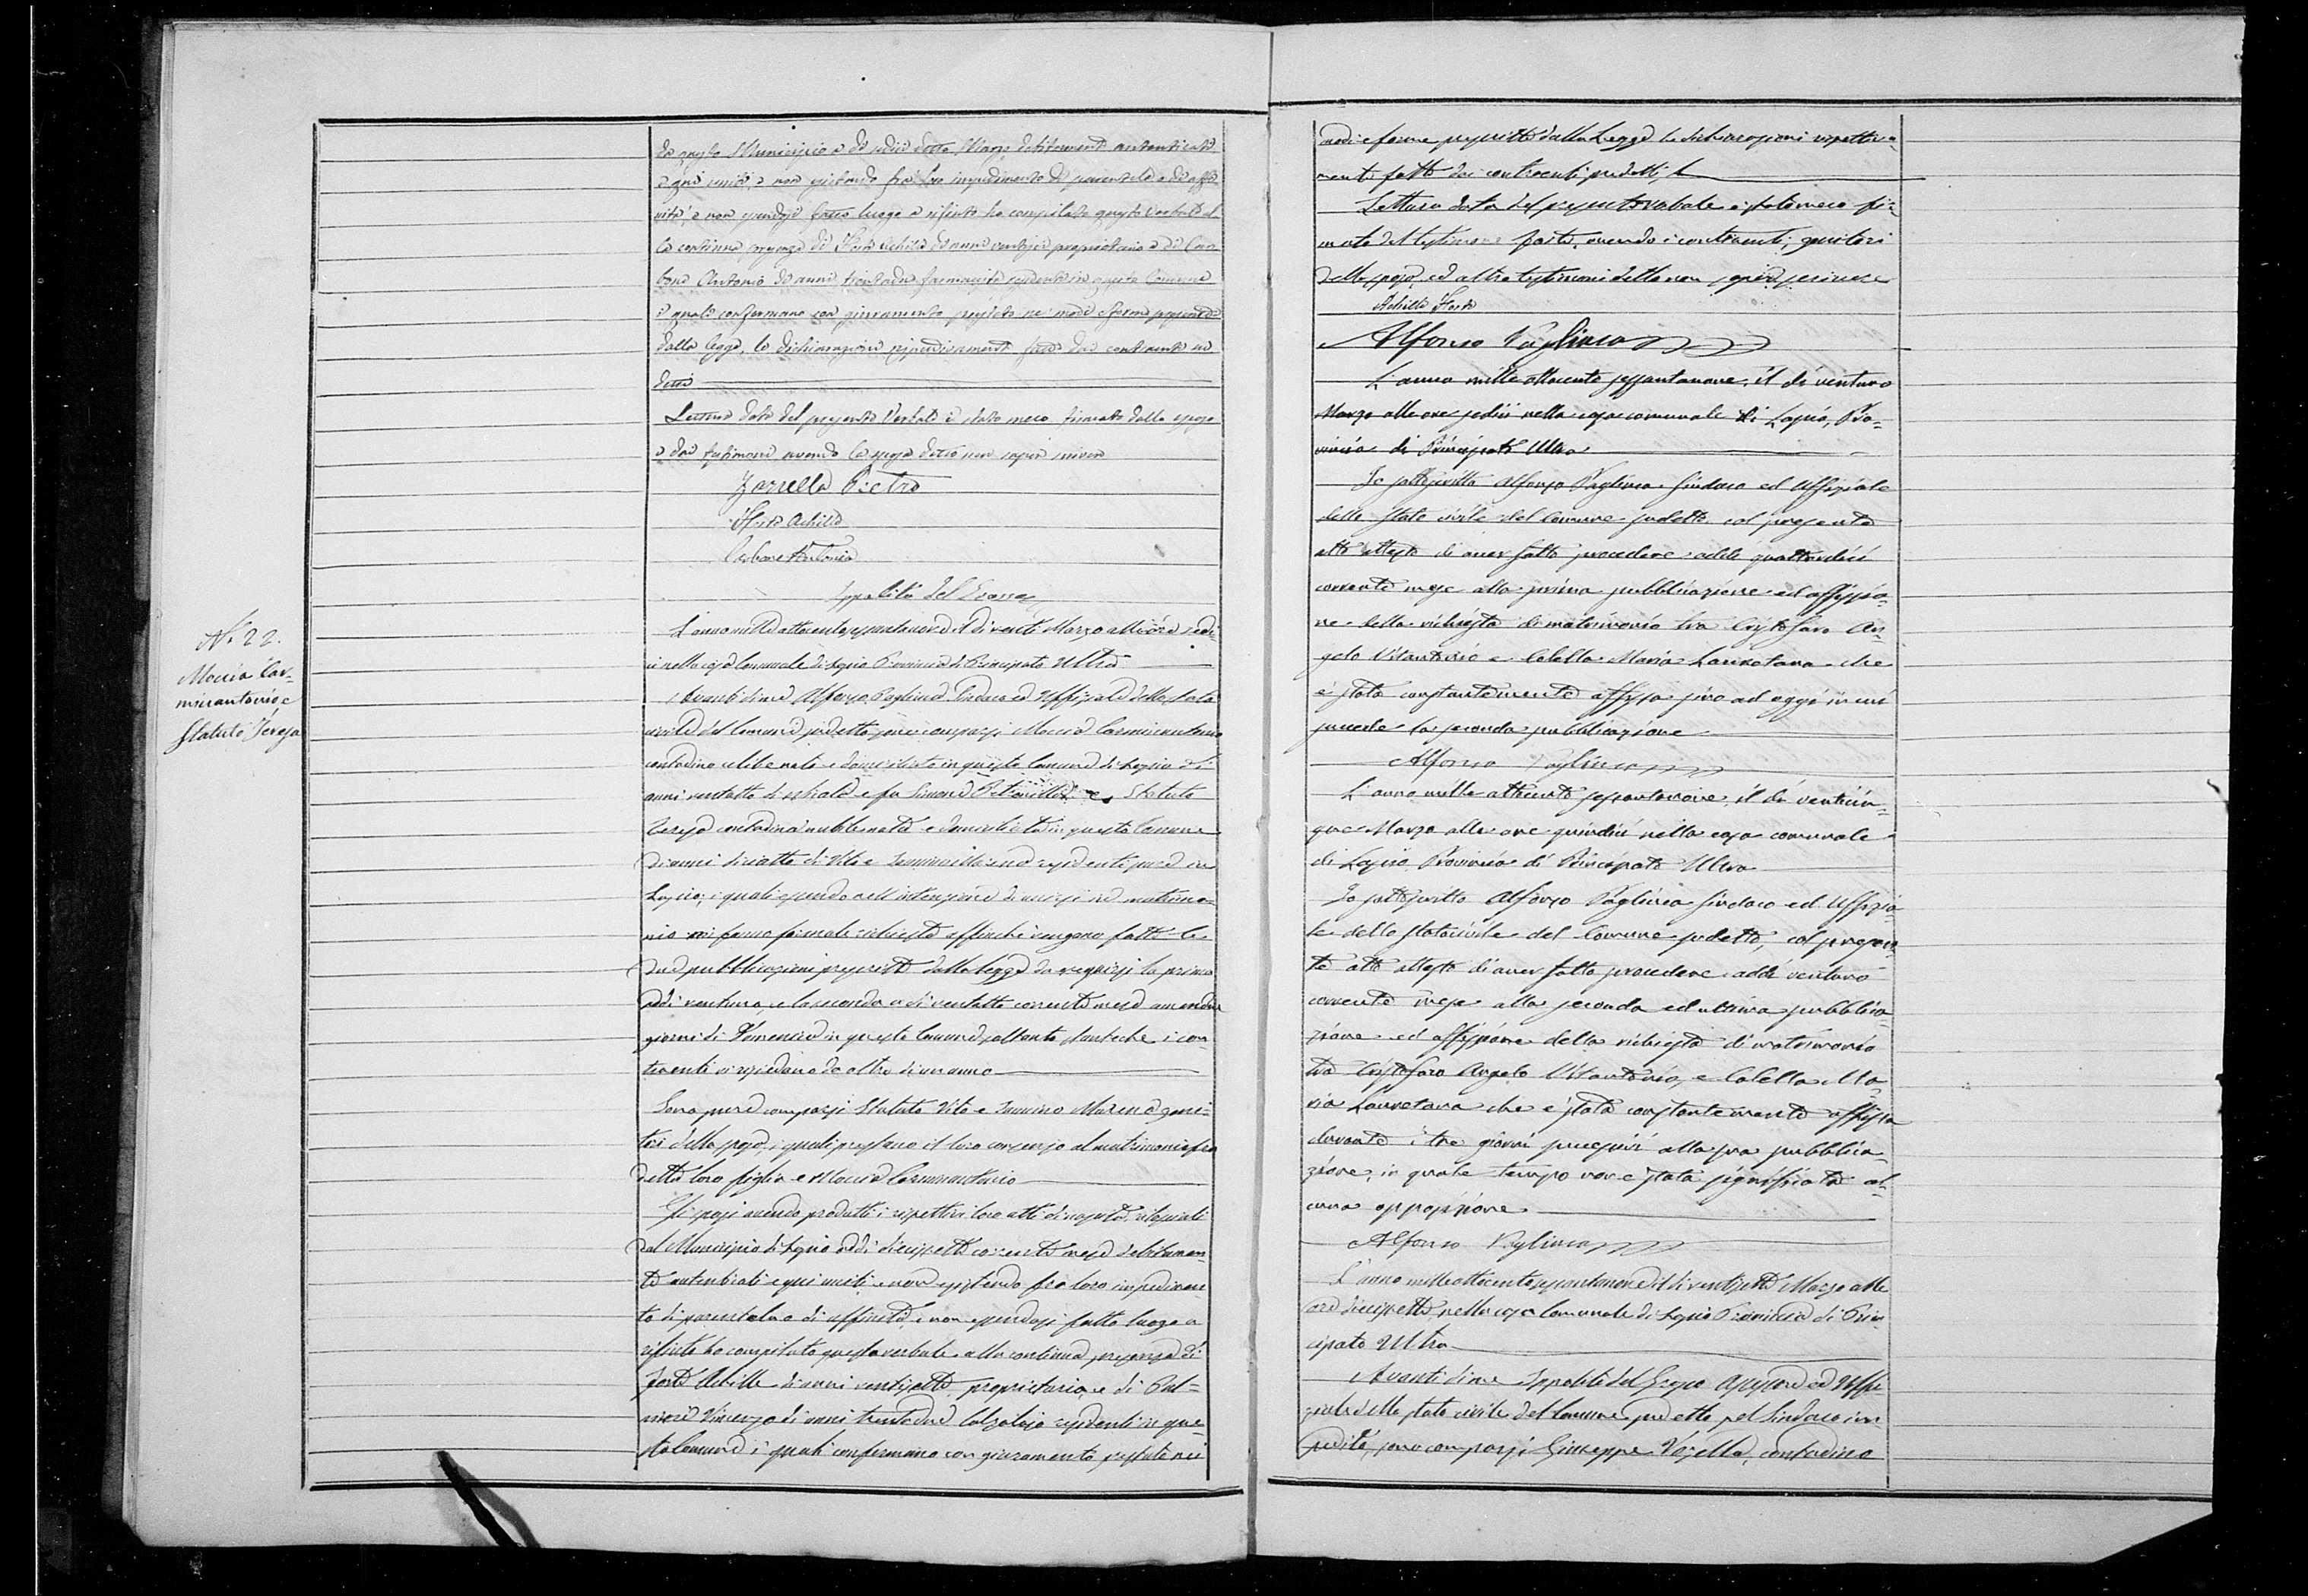 da questo Municipio a dì sedici detto Marzo debitamente autenticati
e qui uniti, e non esistendo fra loro impedimento di parentela o di affi-
nità, e non essendosi fatto luogo a rifiuto ho compilato questo verbale al-
la continua presenza di Forte Achille di anni ventisei proprietario e di Car-
bone Antonio di anni trentadue farmacista residenti in questo Comune
i quali confermano con giuramento prestato ne' modi e forme prescritte
dalla legge, le dichiarazioni rispettivamente fatte dai contraenti sud
detti
Lettura data del presente Verbale è stato meco firmato dallo sposo
e dai testimoni avendo la sposa detto non saper scrivere
Zarrella Pietro
Forte Achille
Carbone Antonio
Ippolito Del Grosso
N.º 22.
Moccia Car-
minantonio e
Statuto Teresa
L'anno mille ottocento sessantanove il dì venti Marzo alle ore sedi-
ci nella casa Comunale di Lapio Provincia di Principato Ultra
Avanti di me Alfonso Pagliuca Sindaco ed Uffiziale dello stato
civile del Comune sudetto sono comparsi Moccia Carminantonio
contadino celibe nato e domiciliato in questo Comune di Lapio di
anni ventotto di e fu Simone e Statuto
Teresa contadina nubile nata e domiciliata in questo Comune
di anni diciotto di Vito e residenti pure in
Lapio; i quali essendo nell'intenzione di unirsi in matrimo-
nio mi fanno formale richiesta affinchè vengano fatte le
due pubblicazioni prescritte dalla legge da eseguirsi la prima
addì ventuno, e la seconda a dì ventotto corrente mese amendue
giorni di Domenica in questo Comune soltanto stantechè i con-
traenti vi risiedono da oltre di un anno
Sono pure comparsi Statuto Vito e geni-
tori della sposa, i quali prestano il loro consenso al matrimonio fra
detta loro figlia e Moccia Carminantonio
Gli sposi avendo prodotti i rispettivi loro atti di nascita rilasciati
dal Municipio di Lapio addì diecisette corrente mese debitamen-
te autenticati e qui uniti, e non esistendo fra loro impedimen-
to di parentela o di affinità, e non essendosi fatto luogo a
rifiuto ho compilato questo verbale alla continua presenza di
Forte Achille di anni ventisette, proprietario, e di
Vincenzo di anni trentadue Calzolajo residenti in que-
sto Comune i quali confermano con giuramento prestato nei
modi e forme prescritte dalla Legge le dichiarazioni rispettiva-
mente fatte dai contraenti sudetti
Lettura data del presente verbale è stato meco fir-
mato dal testimone Forte, avendo i contraenti, genitori
della sposa, ed altro testimone detto non saper scrivere
Achille Forte
Alfonso Pagliuca
L'anno mille ottocento sessantanove, il dì ventuno
Marzo alle ore sedici nella casa comunale di Lapio, Pro-
vincia di Principato Ultra
Io sottoscritto Alfonso Pagliuca Sindaco ed Uffiziale
dello Stato civile del Comune sudetto col presente
atto attesto di aver fatto procedere addì quattordici
corrente mese alla prima pubblicazione ed affissio-
ne della richiesta di matrimonio tra Cristofaro An-
gelo Vitantonio e Colella Maria Lauretana che
è stata constantemente affissa sino ad oggi in cui
succede la seconda pubblicazione
Alfonso Pagliuca
L'anno mille ottocento sessantanove, il dì venticin-
que Marzo alle ore quindici nella casa comunale
di Lapio Provincia di Principato Ultra
Io sottoscritto Alfonso Pagliuca Sindaco ed Uffizia-
le dello stato civile del Comune sudetto, col presen-
te atto attesto di aver fatto procedere addì ventuno
corrente mese alla seconda ed ultima pubblica-
zione ed affissione della richiesta di matrimonio
tra Cristofaro Angelo Vitantonio, e Colella Ma-
ria Lauretana che è stata constantemente affissa
durante i tre giorni successivi alla sua pubblica-
zione, in quale tempo non è stata significata al-
cuna opposizione
Alfonso Pagliuca
L'anno mille ottocento sessantanove il dì ventisette Marzo alle
ore diecisette nella casa Comunale di Lapio Provincia di Prin-
cipato Ultra
Avanti di me Ippolito del Grosso Assessore ed Uffi
ziale dello stato civile del Comune sudetto pel Sindaco im-
pedito, sono comparsi Giuseppe contadino